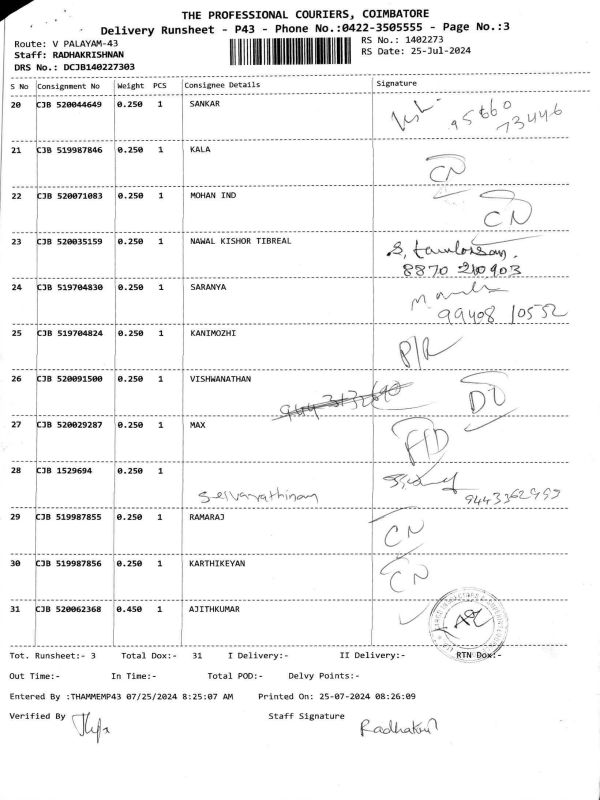 THE PROFESSIONAL COURIERS, COIMBATORE
Delivery Runsheet - P43 - Phone No.:0422-3505555 - Page No.:3
Route: V PALAYAM-43
RS No.: 1402273
Staff: RADHAKRISHNAN
RS Date: 25-Jul-2024
DRS No.: DCJB140227303
S No Consignment No Weight PCS Consignee Details Signature
20 CJB 520044649 0.250 1 SANKAR
95660
73446
21 CJB 519987846 0.250 1 KALA
CN
22 CJB 520071083 0.250 1 MOHAN IND
CN
23 CJB 520035159 0.250 1 NAWAL KISHOR TIBREAL
8870 210903
24 CJB 519704830 0.250 1 SARANYA
99408 10552
25 CJB 519704824 0.250 1 KANIMOZHI
P/R
26 CJB 520091500 0.250 1 VISHWANATHAN
27 CJB 520029287 0.250 1 MAX
28 CJB 1529694 0.250 1
Selvarathinam
29 CJB 519987855 0.250 1 RAMARAJ
CN
30 CJB 519987856 0.250 1 KARTHIKEYAN
CN
31 CJB 520062368 0.450 1 AJITHKUMAR
Tot. Runsheet:- 3 Total Dox:- 31 I Delivery:- II Delivery:- RTN Dox:-
Out Time:- In Time:- Total POD:- Delvy Points:-
Entered By :THAMMEMP43 07/25/2024 8:25:07 AM Printed On: 25-07-2024 08:26:09
Verified By Staff Signature